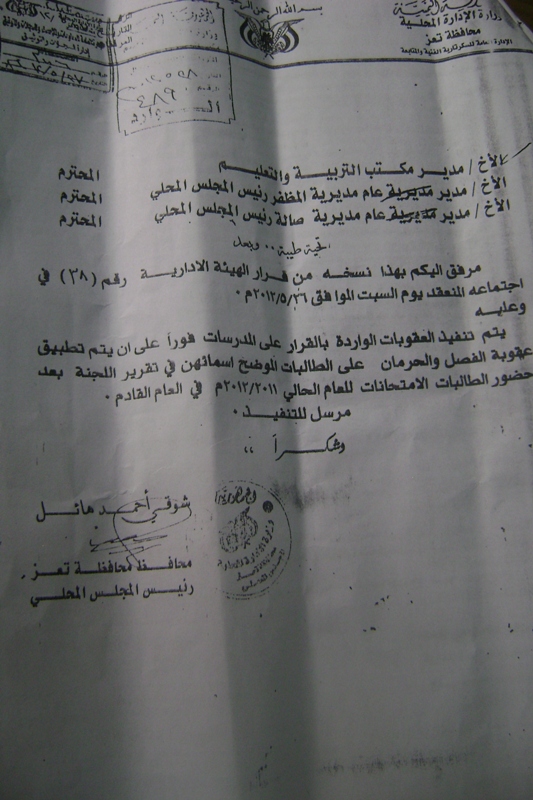 بسم الله الرحمن
وزارة الإدارة المحلية
محافظة تعز
الإدارة العامة للسكرتارية الفنية والمتابعة
الأخ / مدير مكتب التربية والتعليم المحترم
الأخ / مدير مديرية عام مديرية المظفر رئيس المجلس المحلي المحترم
الأخ / مدير مديرية عام مديرية صالة رئيس المجلس المحلي المحترم
تحية طيبة ،، وبعد
مرفق اليكم بهذا نسخه من قرار الهيئة الادارية رقم (٣٨) في
اجتماعه المنعقد يوم السبت الموافق ٢٠١٢/٥/٢٦م .
وعليه
يتم تنفيذ العقوبات الواردة بالقرار على المدرسات فوراً على ان يتم تطبيق
عقوبة الفصل والحرمان على الطالبات الموضح اسمائهن في تقرير اللجنة بعد
حضور الطالبات الامتحانات للعام الحالي ٢٠١٢/٢٠١١م في العام القادم .
مرسل للتنفيذ .
وشكراً ،،
شوقي أحمد هائل
محافظ محافظة تعز
رئيس المجلس المحلي